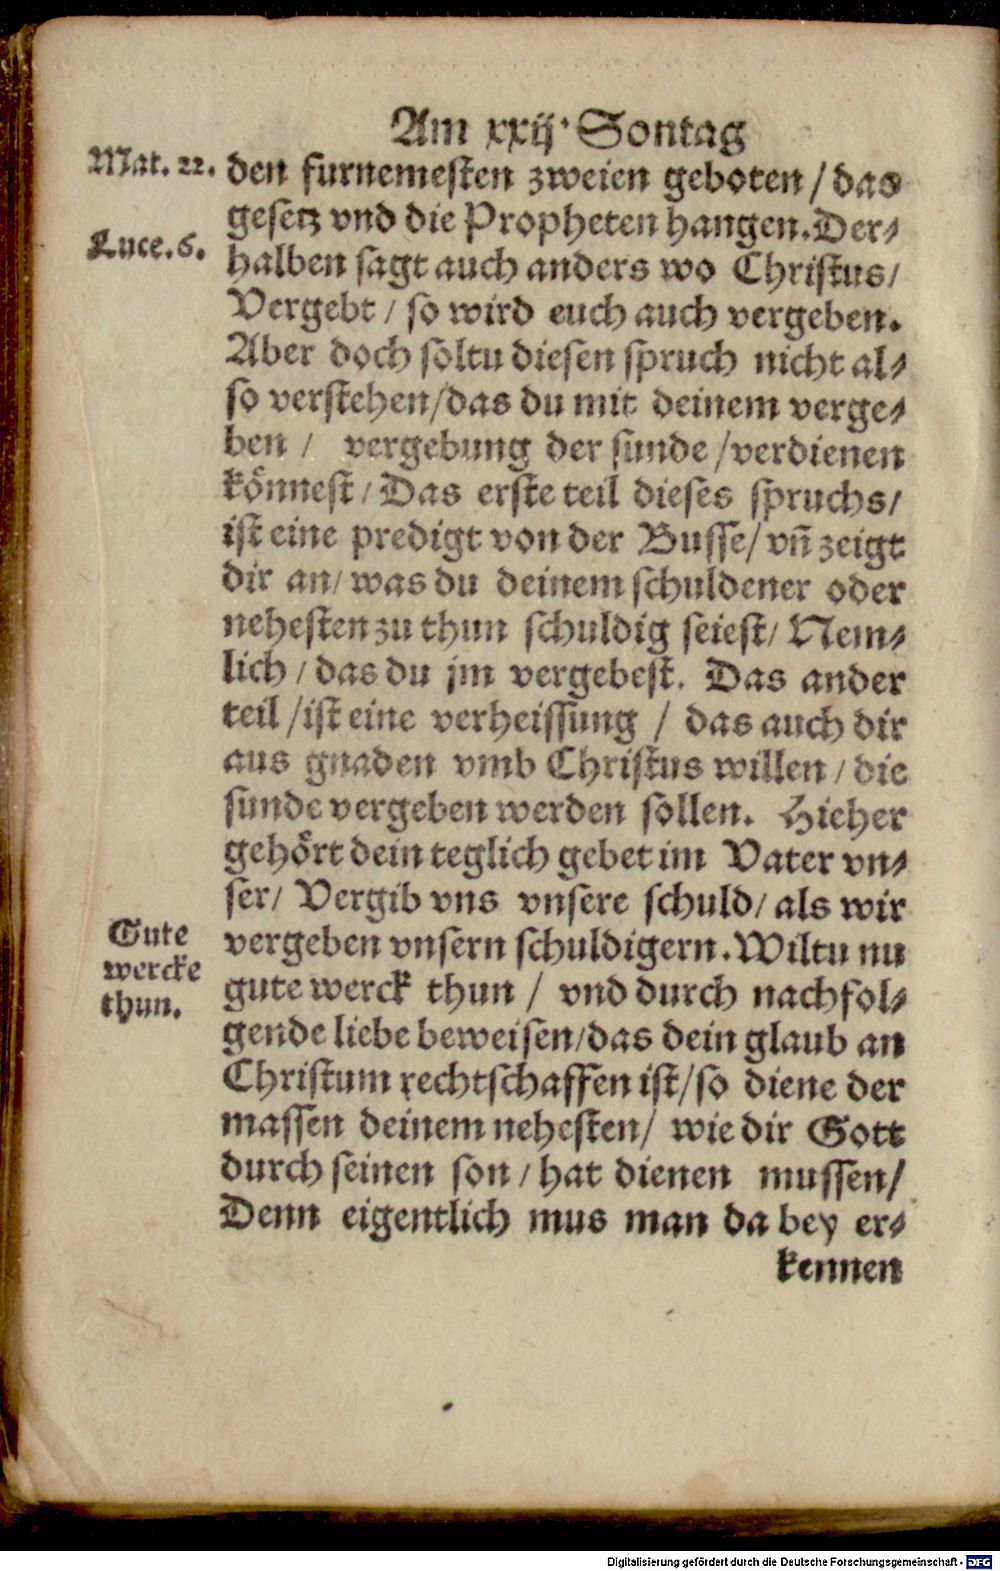 Am xxij. Sontag
Mat. 22.
den furnemesten zweien geboten / das
gesetz vnd die Propheten hangen. Der⸗
Luce. 6.
halben sagt auch anders wo Christus /
Vergebt / so wird euch auch vergeben.
Aber doch soltu diesen spruch nicht al⸗
so verstehen / das du mit deinem verge⸗
ben / vergebung der sunde / verdienen
könnest / Das erste teil dieses spruchs /
ist eine predigt von der Busse / vñ zeigt
dir an / was du deinem schuldener oder
nehesten zu thun schuldig seiest / Nem⸗
lich / das du jm vergebest. Das ander
teil / ist eine verheissung / das auch dir
aus gnaden vmb Christus willen / die
sunde vergeben werden sollen. Hieher
gehört dein teglich gebet im Vater vn⸗
ser / Vergib vns vnsere schuld / als wir
Gute
wercke
thun.
vergeben vnsern schuldigern. Wiltu nu
gute werck thun / vnd durch nachfol⸗
gende liebe beweisen / das dein glaub an
Christum rechtschaffen ist / so diene der
massen deinem nehesten / wie dir Gott
durch seinen son / hat dienen mussen /
Denn eigentlich mus man da bey er⸗
kennen
Digitalisierung gefördert durch die Deutsche Forschungsgemeinschaft - DFG